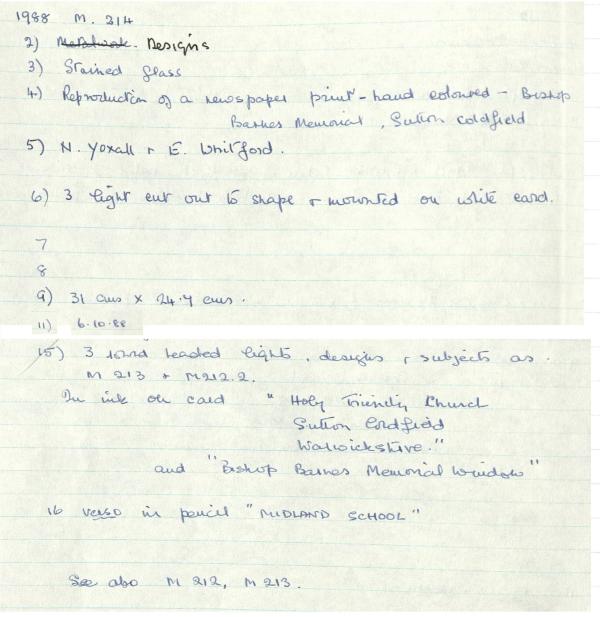 1988 M. 214
2) Metalwork. Designs
3) Stained glass
4.) Reproduction of a newspaper print - hand coloured - Bishop
Barnes Memorial, Sutton Coldfield
5) N. Yoxall + E. Whitford.
6) 3 light cut out to shape + mounted on white card.
7
8
9) 31 cms x 24.7 cms.
11) 6.10.88
15) 3 round headed lights, designs + subjects as.
M 213 + M212.2.
In ink on card "Holy Trinity Church
Sutton Coldfield
Warwickshire."
and "Bishop Barnes Memorial Window"
16 verso in pencil "MIDLAND SCHOOL"
See also M 212, M 213.